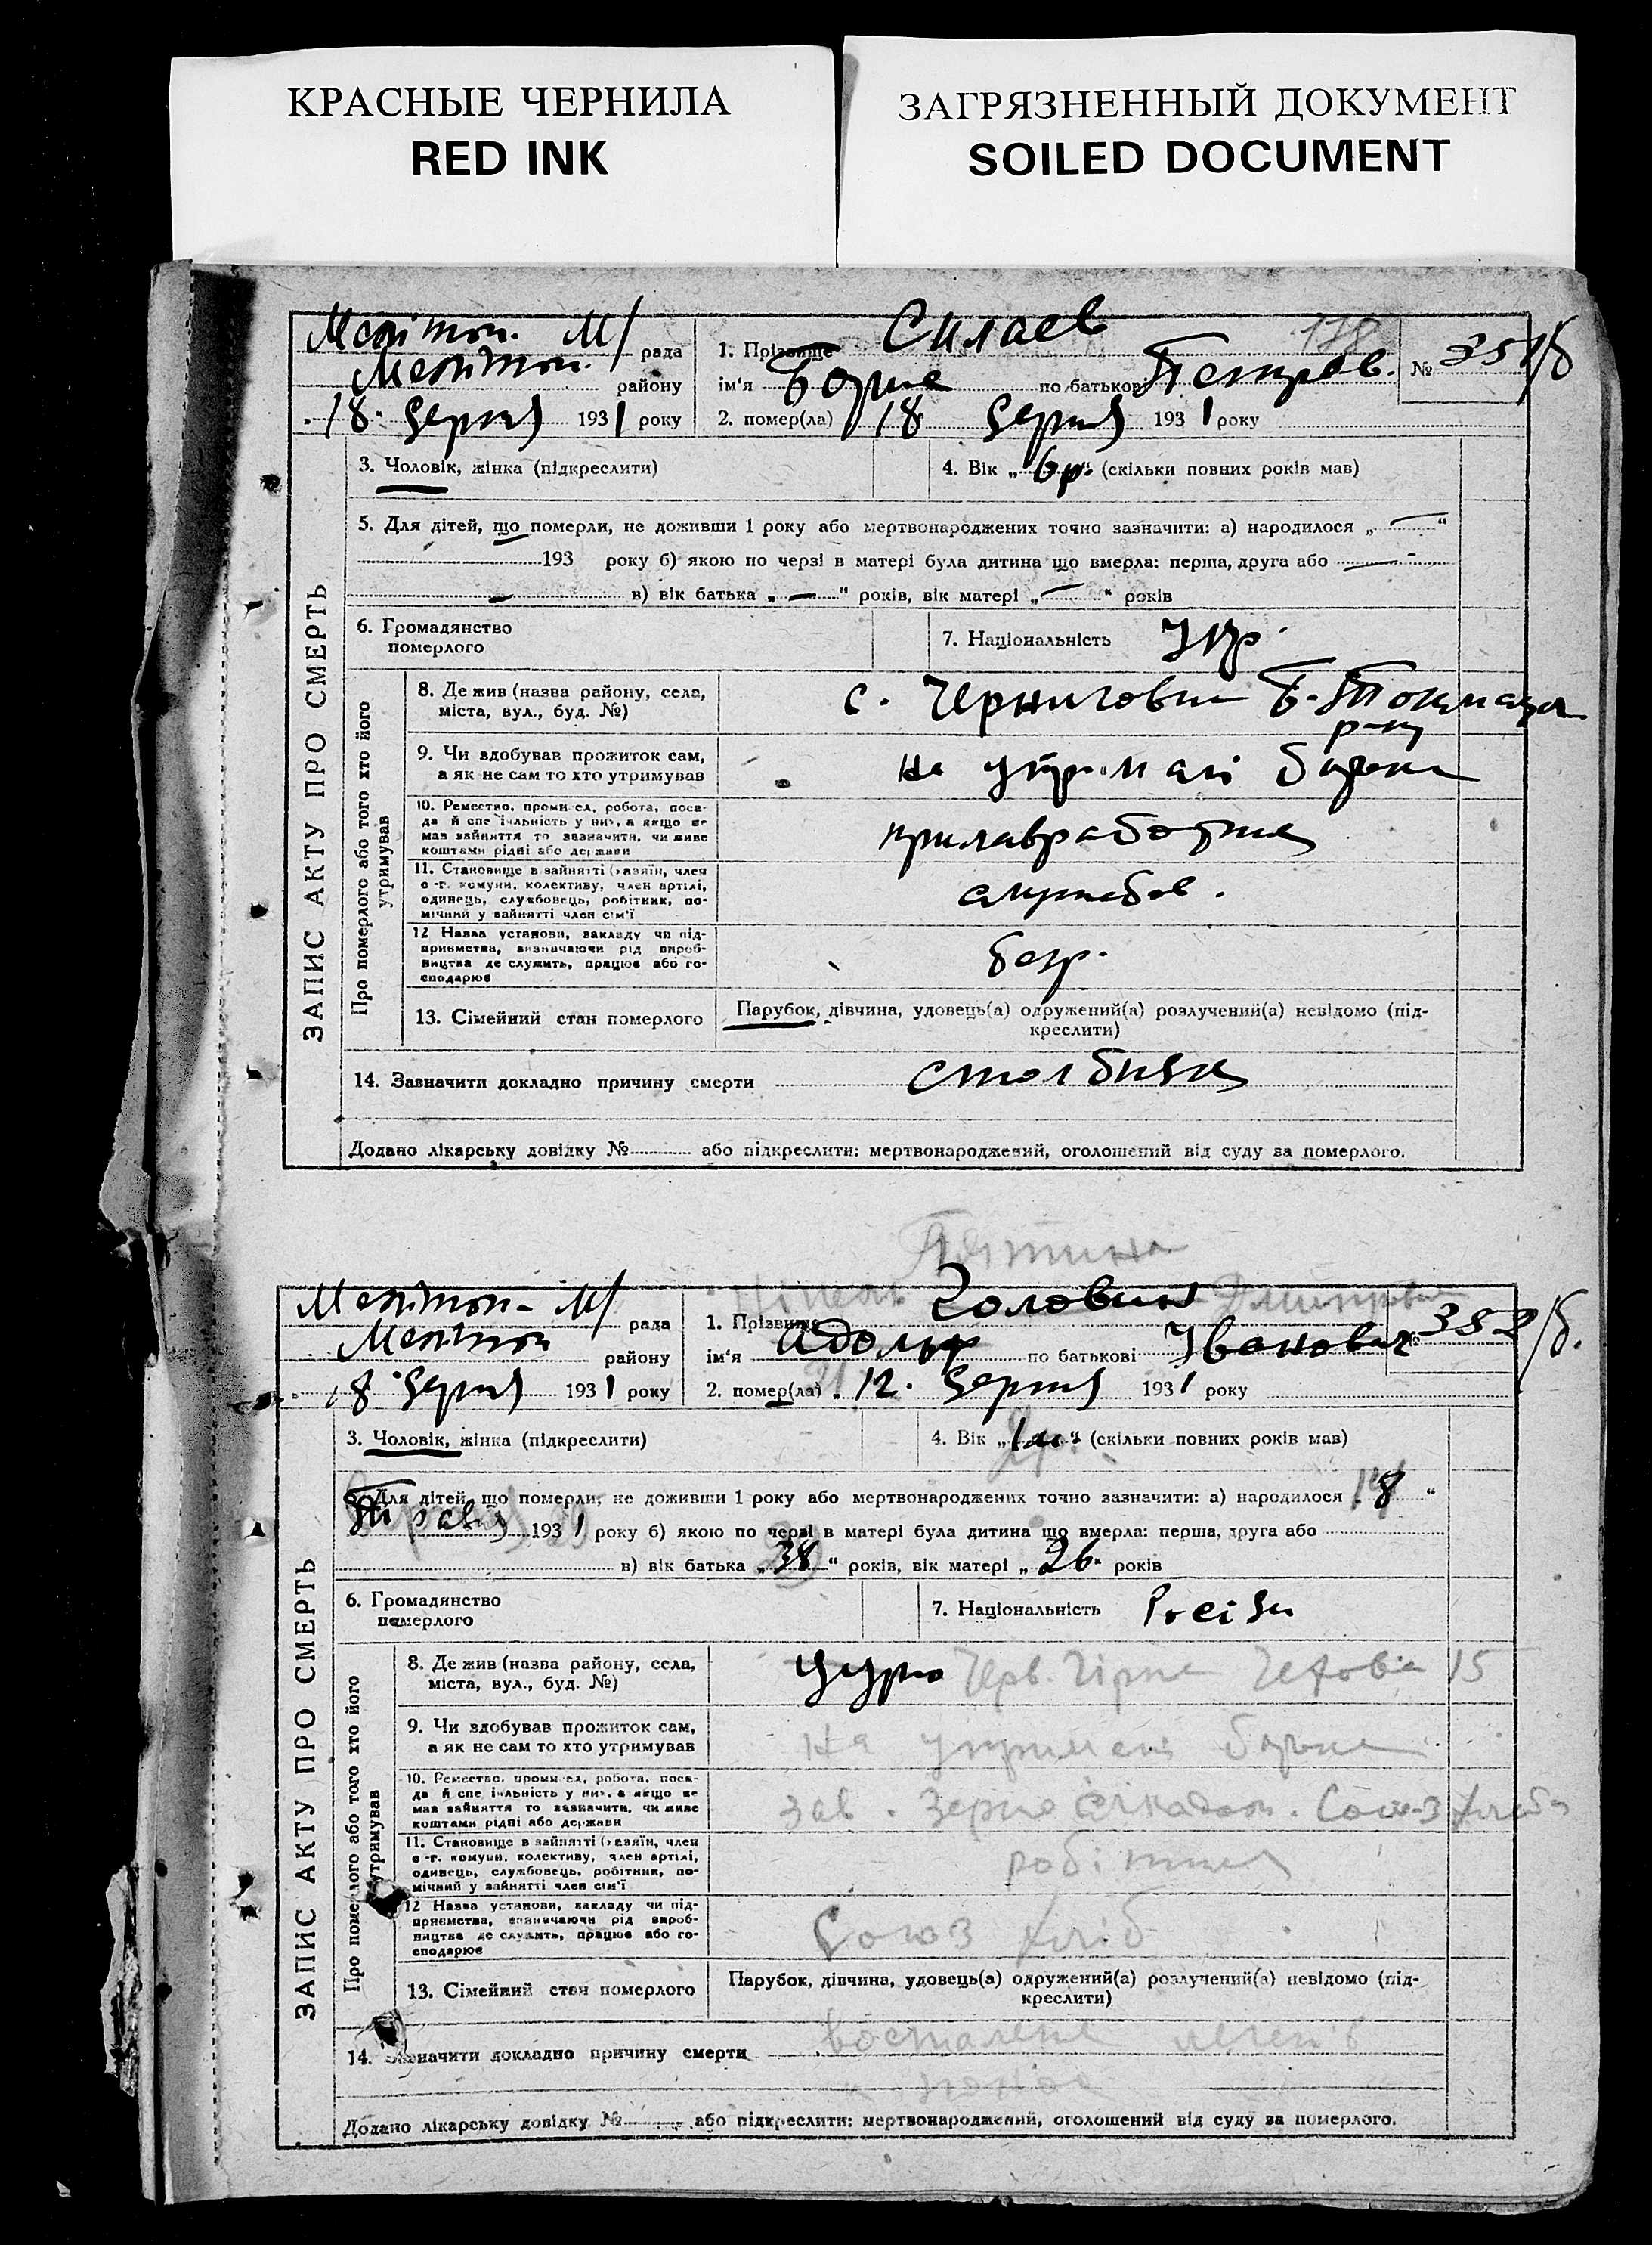 КРАСНЫЕ ЧЕРНИЛА
RED INK
ЗАГРЯЗНЕННЫЙ ДОКУМЕНТ
SOILED DOCUMENT
ЗАПИС АКТУ ПРО СМЕРТЬ
Меліт. М/ рада
Меліт. району
18 серпня 1931 року
1. Прізвище Силаев 178
ім'я Борис по батькові Петров. № 351/б
2. помер(ла) 18 серпня 1931 року
3. Чоловік, жінка (підкреслити)
4. Вік „6 р.“ (скільки повних років мав)
5. Для дітей, що померли, не доживши 1 року або мертвонароджених точно зазначити: а) народилося „ — “
193 року б) якою по черзі в матері була дитина що вмерла: перша, друга або —
— в) вік батька „ — “ років, вік матері „ — “ років
6. Громадянство померлого
7. Національність Укр.
Про померлого або того хто його утримував
8. Де жив (назва району, села, міста, вул., буд. №)
с. Черниговка Б-Токмацьк
р-ну
9. Чи здобував прожиток сам, а як не сам то хто утримував
на утриман батька
10. Ремество, промисел, робота, посада й спеціяльність у них, а якщо не мав зайняття то зазначити, чи живе коштами рідні або держави
прилавработник
11. Становище в зайнятті (хазяїн, член с.-г. комуни, колективу, член артілі, одинець, службовець, робітник, помічний у зайнятті член сім'ї
службов.
12 Назва установи, закладу чи підприємства, визначаючи рід виробництва де служить, працює або господарює
безр.
13. Сімейний стан померлого
Парубок, дівчина, удовець(а) одружений(а) розлучений(а) невідомо (підкреслити)
14. Зазначити докладно причину смерти столбняк
Додано лікарську довідку № або підкреслити: мертвонароджений, оголошений від суду за померлого.
ЗАПИС АКТУ ПРО СМЕРТЬ
Меліт. М/ рада
Меліт району
18 серпня 1931 року
1. Прізвище Головин
ім'я Адольф по батькові Іванович № 352/б.
2. помер(ла) 12. серпня 1931 року
3. Чоловік, жінка (підкреслити)
4. Вік „1 м.“ (скільки повних років мав)
5. Для дітей, що померли, не доживши 1 року або мертвонароджених точно зазначити: а) народилося „8“
Травня 1931 року б) якою по черзі в матері була дитина що вмерла: перша, друга або
в) вік батька „38“ років, вік матері „26“ років
6. Громадянство померлого
7. Національність Росіян
Про померлого або того хто його утримував
8. Де жив (назва району, села, міста, вул., буд. №)
Черв. Гірка Чехова 15
9. Чи здобував прожиток сам, а як не сам то хто утримував
На утриман батька
10. Ремество, промисел, робота, посада й спеціяльність у них, а якщо не мав зайняття то зазначити, чи живе коштами рідні або держави
зав. зерно складом. Союз хліб
11. Становище в зайнятті (хазяїн, член с.-г. комуни, колективу, член артілі, одинець, службовець, робітник, помічний у зайнятті член сім'ї
робітник
12 Назва установи, закладу чи підприємства, визначаючи рід виробництва де служить, працює або господарює
Союз хліб
13. Сімейний стан померлого
Парубок, дівчина, удовець(а) одружений(а) розлучений(а) невідомо (підкреслити)
14. Зазначити докладно причину смерти
Додано лікарську довідку № або підкреслити: мертвонароджений, оголошений від суду за померлого.